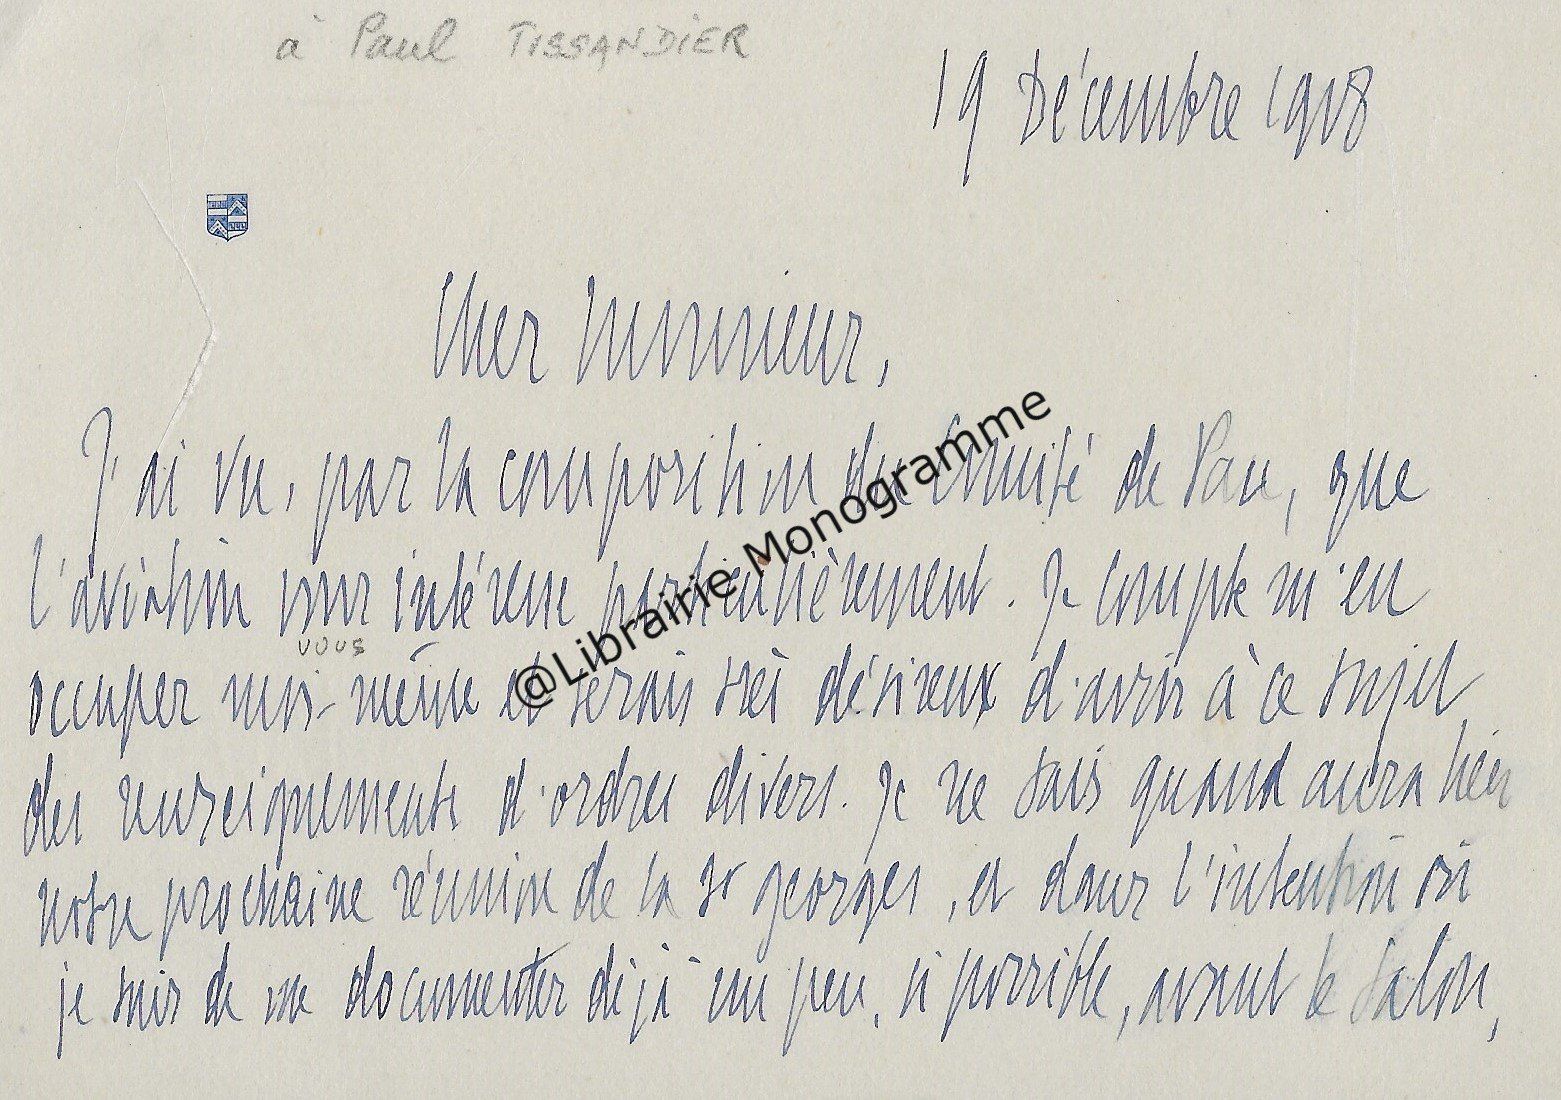 à Paul TISSANDIER
19 Décembre 1908
Cher Monsieur,
J'ai vu, par la composition du Comité de Pau, que
l'aviation vous intéresse particulièrement. Je compte m'en
vous
occuper moi-même et serais très désireux d'avoir à ce sujet
des renseignements d'ordres divers. Je ne sais quand aura lieu
notre prochaine réunion de la St Georges, et dans l'intention où
je suis de me documenter déjà un peu, si possible, avant le Salon,
@Librairie Monogramme